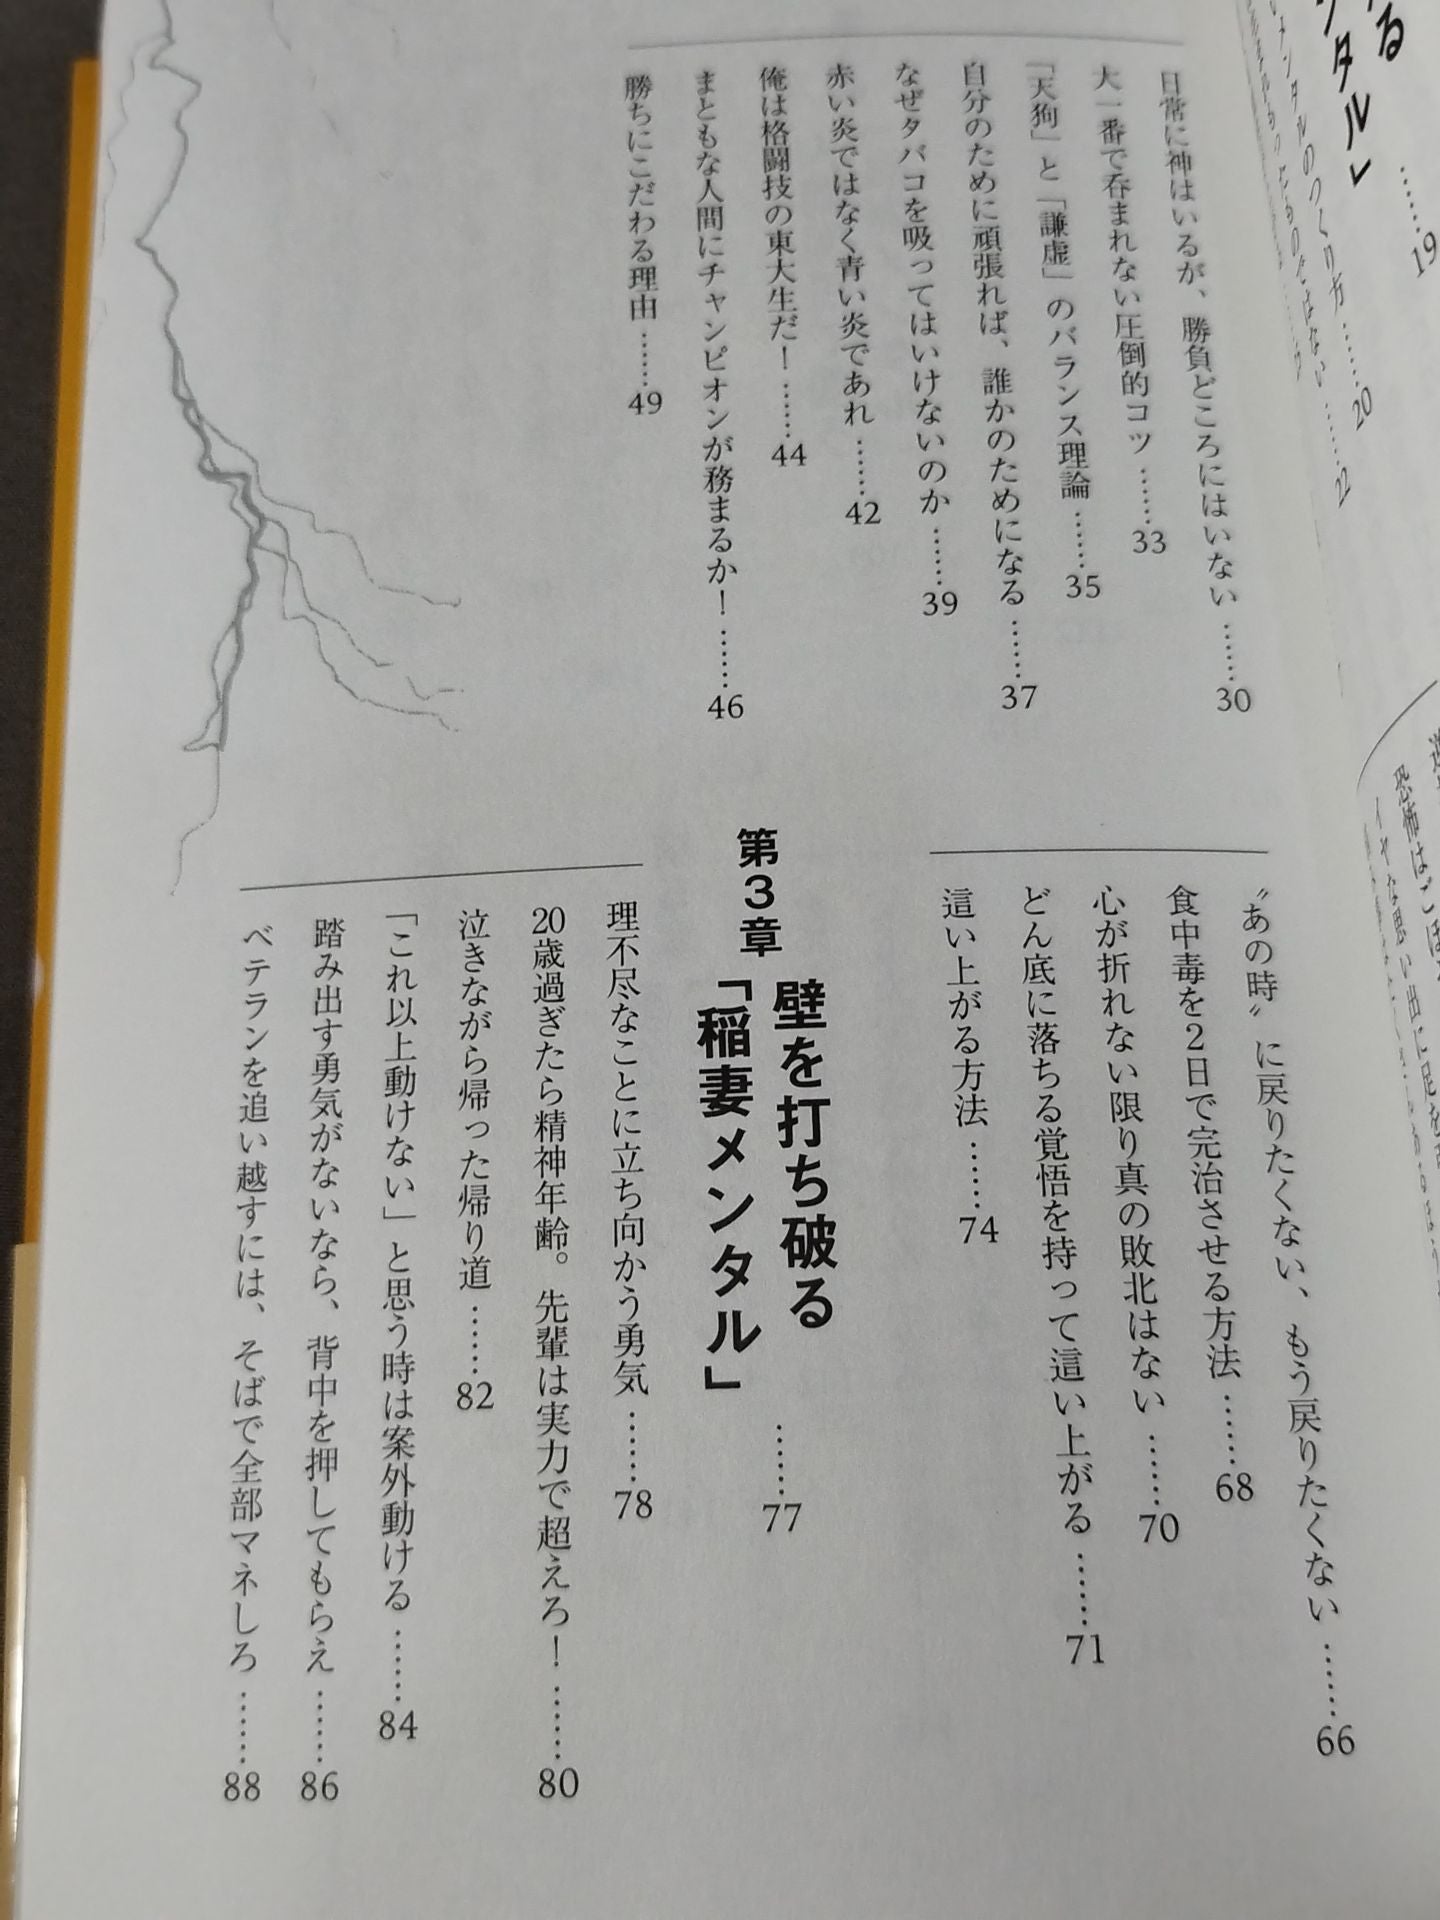 タル」
……19
……20
……22
日常に神はいるが、勝負どころにはいない……30
大一番で呑まれない圧倒的コツ……33
「天狗」と「謙虚」のバランス理論……35
自分のために頑張れば、誰かのためになる……37
なぜタバコを吸ってはいけないのか……39
赤い炎ではなく青い炎であれ……42
俺は格闘技の東大生だ!……44
まともな人間にチャンピオンが務まるか!……46
勝ちにこだわる理由……49
恐怖はこ
イヤな思い出に足を
〝あの時〟に戻りたくない、もう戻りたくない……66
食中毒を2日で完治させる方法……68
心が折れない限り真の敗北はない……70
どん底に落ちる覚悟を持って這い上がる……71
這い上がる方法……74
第3章 壁を打ち破る
「稲妻メンタル」……77
理不尽なことに立ち向かう勇気……78
20歳過ぎたら精神年齢。先輩は実力で超えろ!……80
泣きながら帰った帰り道……82
「これ以上動けない」と思う時は案外動ける……84
踏み出す勇気がないなら、背中を押してもらえ……86
ベテランを追い越すには、そばで全部マネしろ……88